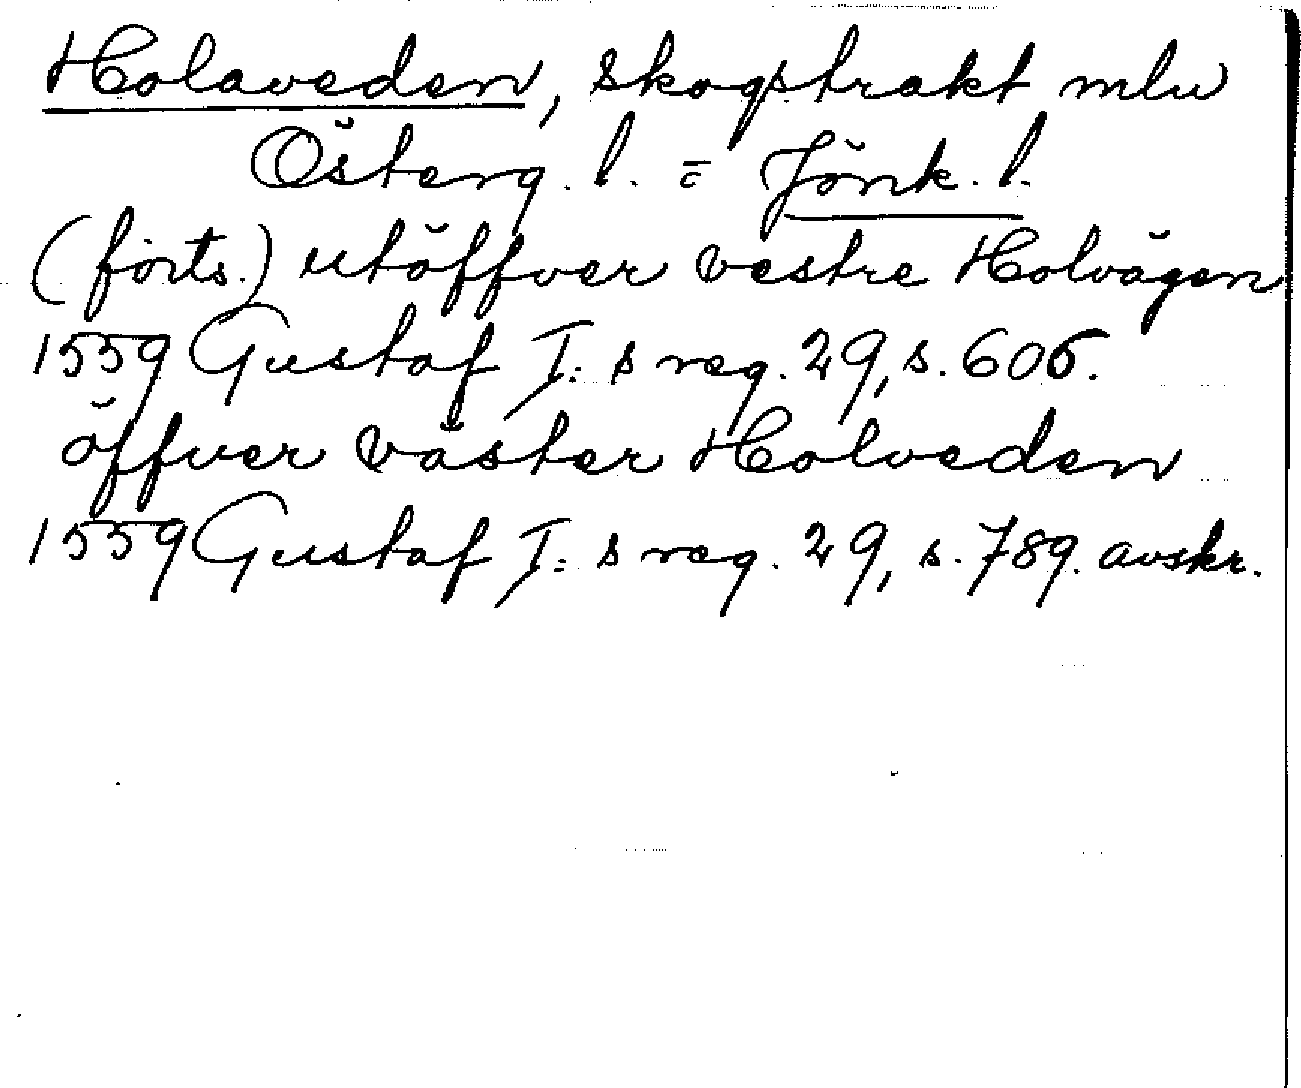 Holaveden, skogstrakt mlw
Österg. l. = Jönk. l.
(forts.) utöffver vestre Holvägen
1559 Gustaf I:s reg. 29, s. 606.
öffver väster Holveden
1559 Gustaf I:s reg. 29, s. 789. avskr.